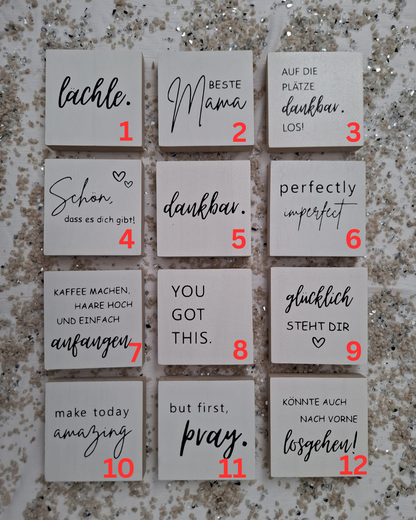 lachle.
1
BESTE
Mama
2
AUF DIE
PLÄTZE
dankbar.
LOS!
3
Schön,
dass es dich gibt!
4
dankbar.
5
perfectly
imperfect
6
KAFFEE MACHEN.
HAARE HOCH
UND EINFACH
anfangen
7
YOU
GOT
THIS.
8
glücklich
STEHT DIR
9
make today
amazing
10
but first,
pray.
11
KÖNNTE AUCH
NACH VORNE
losgehen!
12